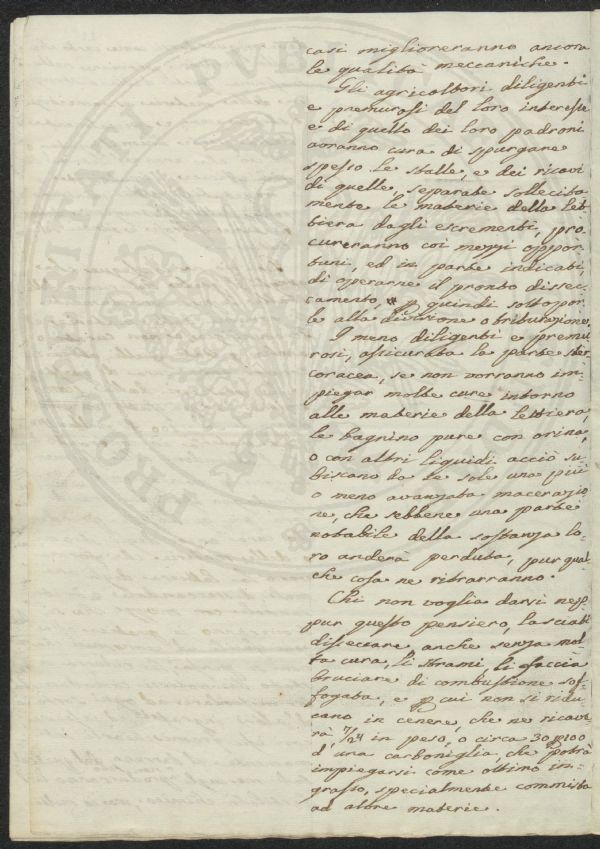 PROSPERITATI PUBLICAE
casi miglioreranno ancora
le qualità meccaniche.
Gli agricoltori diligenti
e premurosi del loro interesse
e di quello dei loro padroni
avranno cura di spurgare
spesso le stalle, e dei ricavi
di quelle, separate sollecita
mente le materie della let
tiera dagli escrementi, pro
cureranno coi mezzi oppor
tuni, ed in parte indicati,
di operarne il pronto dissec
camento, e quindi sottopor
le alla divisione o triturazione.
I meno diligenti e premu
rosi, assicurata la parte ster
coracea, se non vorranno im=
piegar molte cure intorno
alle materie della lettiera,
le bagnino pure con orina,
o con altri liquidi acciò su
biscano da se sole una più
o meno avanzata macerazio
ne, che sebbene una parte
notabile della sostanza lo
ro anderà perduta, pur qual
che cosa ne ritrarranno.
Chi non voglia darsi nep
pur questo pensiero, lasciati
disseccare anche senza mol
ta cura, li strami, li faccia
bruciare di combustione sof
fogata, e p cui non si ridu
cano in cenere, che ne ricave
rà 7/24 in peso, o circa 30 p100
d'una carboniglia, che potrà
impiegarsi come ottimo in=
grasso, specialmente commista
ad altre materie.